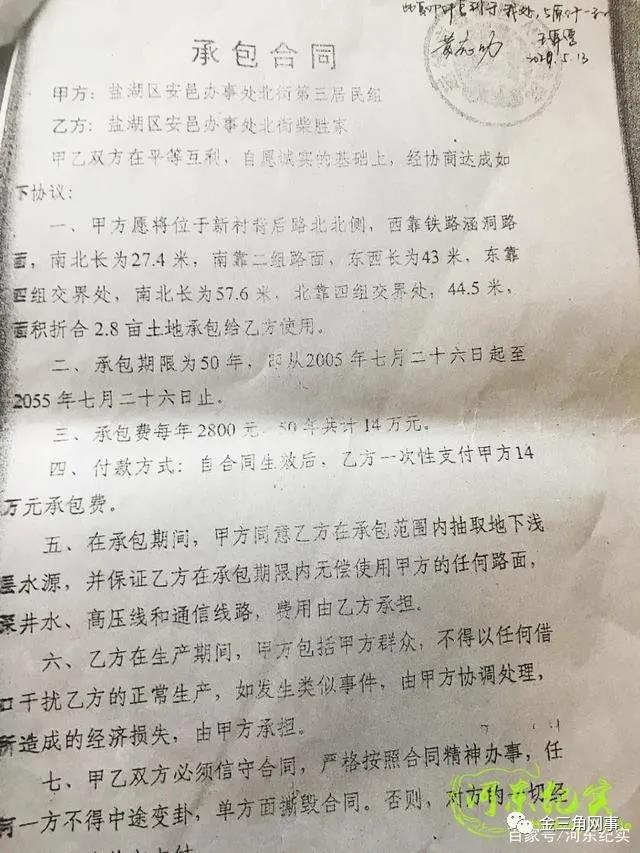 承包合同
甲方：盐湖区安邑办事处北街第三居民组
乙方：盐湖区安邑办事处北街柴胜家
甲乙双方在平等互利，自愿诚实的基础上，经协商达成如
下协议：
一、甲方愿将位于新村背后路北北侧，西靠铁路涵洞路
面，南北长为27.4 米，南靠二组路面，东西长为43 米，东靠
四组交界处，南北长为57.6 米，北靠四组交界处，44.5 米，
面积折合 2.8 亩土地承包给乙方使用。
二、承包期限为50 年，即从2005 年七月二十六日起至
2055 年七月二十六日止。
三、承包费每年 2800 元，50 年共计 14 万元。
四、付款方式：自合同生效后，乙方一次性支付甲方14
万元承包费。
五、在承包期间，甲方同意乙方在承包范围内抽取地下浅
层水源，并保证乙方在承包期限内无偿使用甲方的任何路面，
深井水、高压线和通信线路，费用由乙方承担。
六、乙方在生产期间，甲方包括甲方群众，不得以任何借
口干扰乙方的正常生产，如发生类似事件，由甲方协调处理，
所造成的经济损失，由甲方承担。
七、甲乙双方必须信守合同，严格按照合同精神办事，任
何一方不得中途变卦，单方面撕毁合同。否则，对方的一切经
河东纪实
金三角网事
百家号/河东纪实